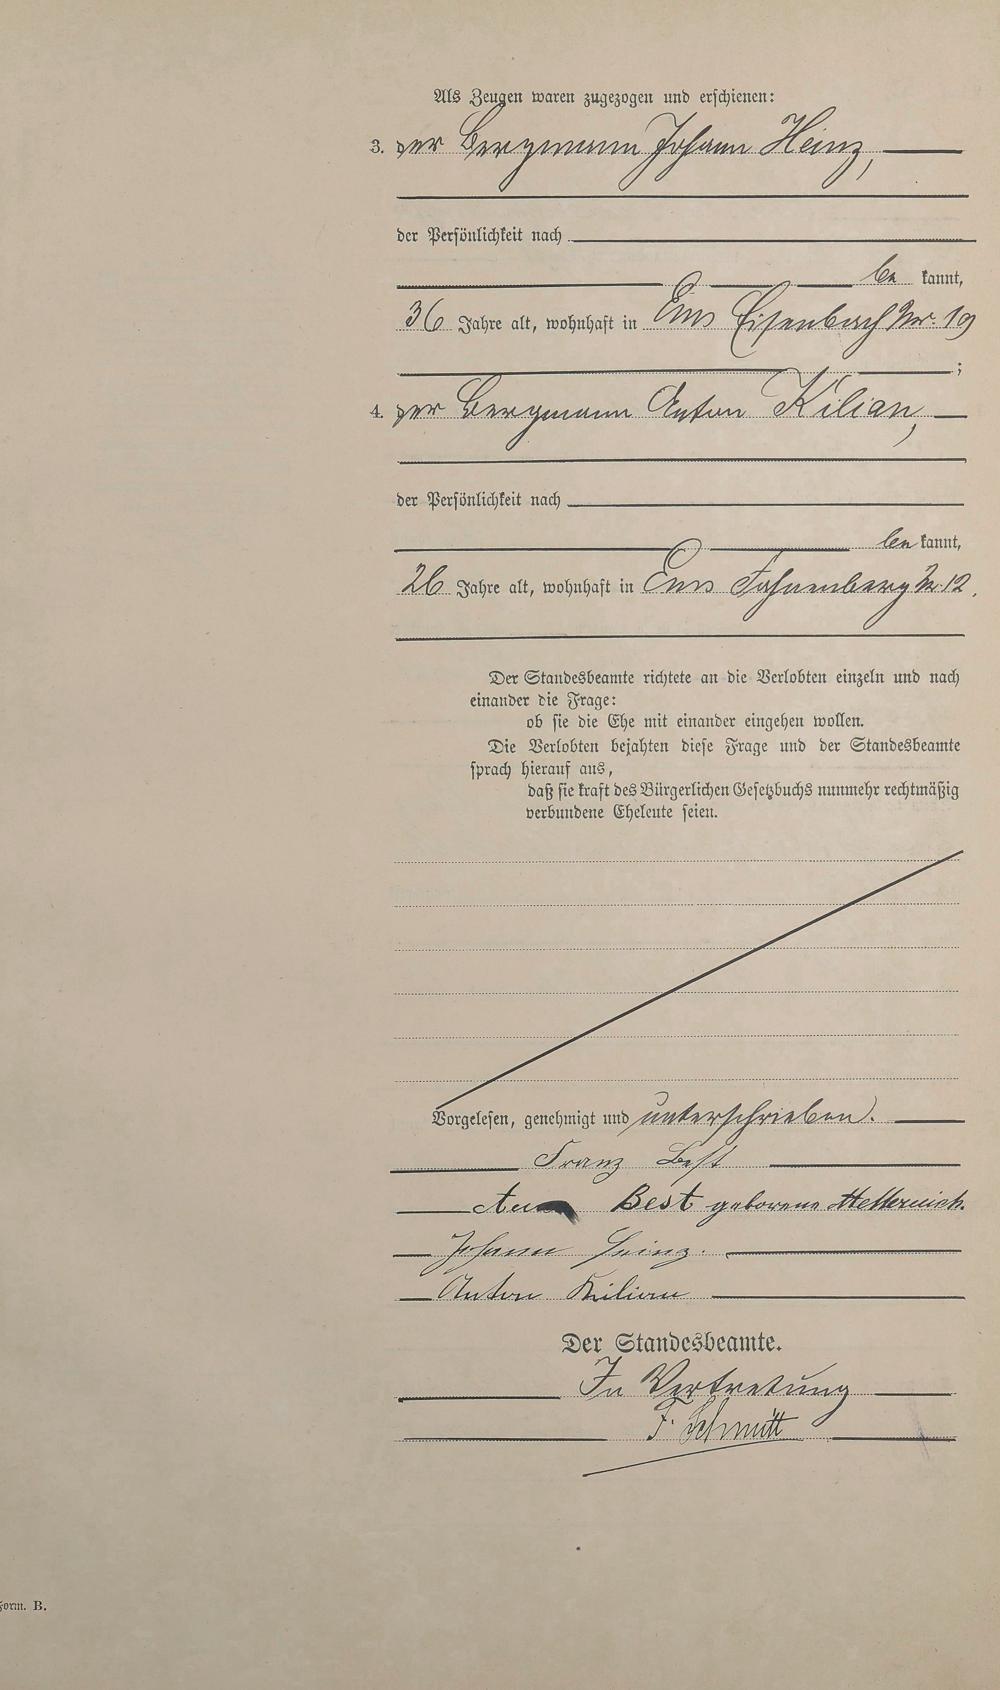 Als Zeugen waren zugezogen und erschienen:
3. der Bergmann Johann Heinz,
der Persönlichkeit nach
be kannt,
36 Jahre alt, wohnhaft in Ems Eisenbach Nr. 19
;
4. der Bergmann Anton Kilian,
der Persönlichkeit nach
be kannt,
26 Jahre alt, wohnhaft in Ems Fahnenberg Nr. 12.
Der Standesbeamte richtete an die Verlobten einzeln und nach
einander die Frage:
ob sie die Ehe mit einander eingehen wollen.
Die Verlobten bejahten diese Frage und der Standesbeamte
sprach hierauf aus,
daß sie kraft des Bürgerlichen Gesetzbuchs nunmehr rechtmäßig
verbundene Eheleute seien.
Vorgelesen, genehmigt und unterschrieben.
Franz Best
Best geborene
Johann Heinz.
Anton Kilian
Der Standesbeamte.
In Vertretung
F. Schmitt
Form. B.